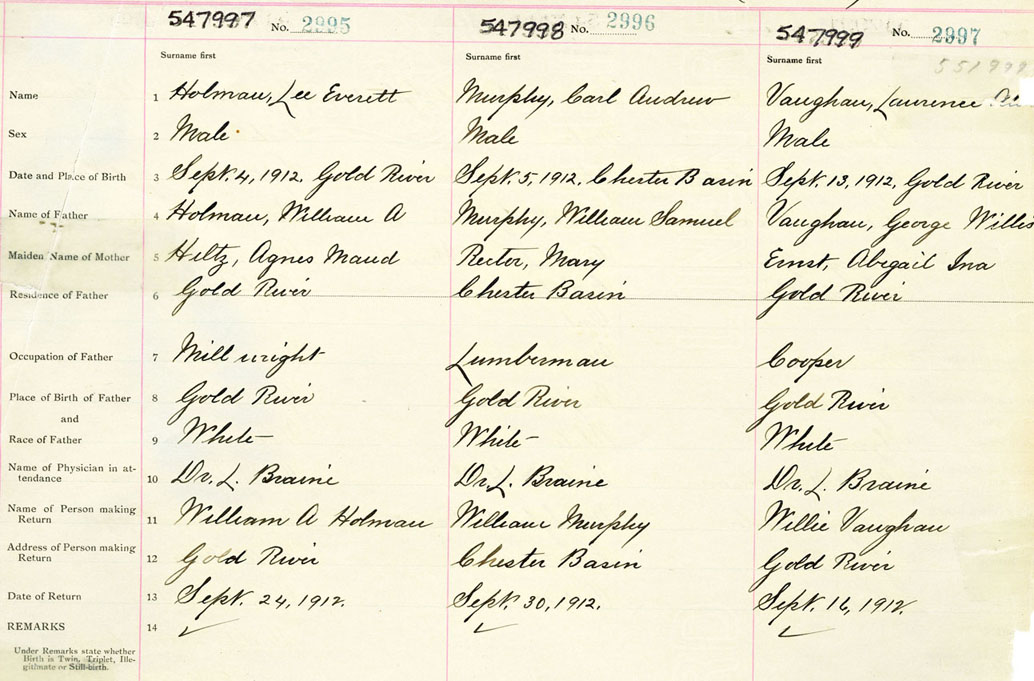 547997 No. 2995 547998 No. 2996 547999 No. 2997
Surname first Surname first Surname first 551999
Name 1 Holman, Lee Everett Murphy, Carl Andrew Vaughan, Laurence
Sex 2 Male Male Male
Date and Place of Birth 3 Sept. 4, 1912. Gold River Sept. 5, 1912. Chester Basin Sept. 13, 1912. Gold River
Name of Father 4 Holman, William A Murphy, William Samuel Vaughan, George Willis
Maiden Name of Mother 5 Hiltz, Agnes Maud Rector, Mary Ernst, Abigail Ina
Residence of Father 6 Gold River Chester Basin Gold River
Occupation of Father 7 Mill wright Lumberman Cooper
Place of Birth of Father 8 Gold River Gold River Gold River
and
Race of Father 9 White White White
Name of Physician in at-
tendance 10 Dr. L. Braine Dr. L. Braine Dr. L. Braine
Name of Person making
Return 11 William A Holman William Murphy Willie Vaughan
Address of Person making
Return 12 Gold River Chester Basin Gold River
Date of Return 13 Sept. 24, 1912. Sept. 30, 1912. Sept. 16, 1912.
REMARKS 14 ✓ ✓ ✓
Under Remarks state whether
Birth is Twin, Triplet, Ille-
gitimate or Still-birth.